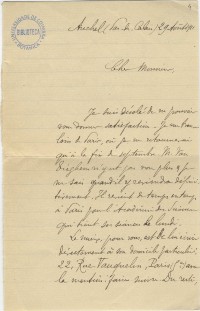 BIBLIOTECA
Auchel (Pas de Calais) 29 Août
Cher Monsieur
Je suis désolé de ne pouvoir
vous donner satisfaction. Je suis bien
loin de Paris, où je ne retournerai
qu'à la fin de septembre. M. Van
Tieghem n'y est pas non plus et je
ne sais quand il y reviendra défini-
tivement. Il vient de temps en temps
à Paris pour l'Académie des Sciences
qui tient ses séances le lundi.
Le mieux, pour vous, est de lui écrire
directement à son domicile particulier:
22, Rue Vauquelin, Paris
la mention: faire suivre.